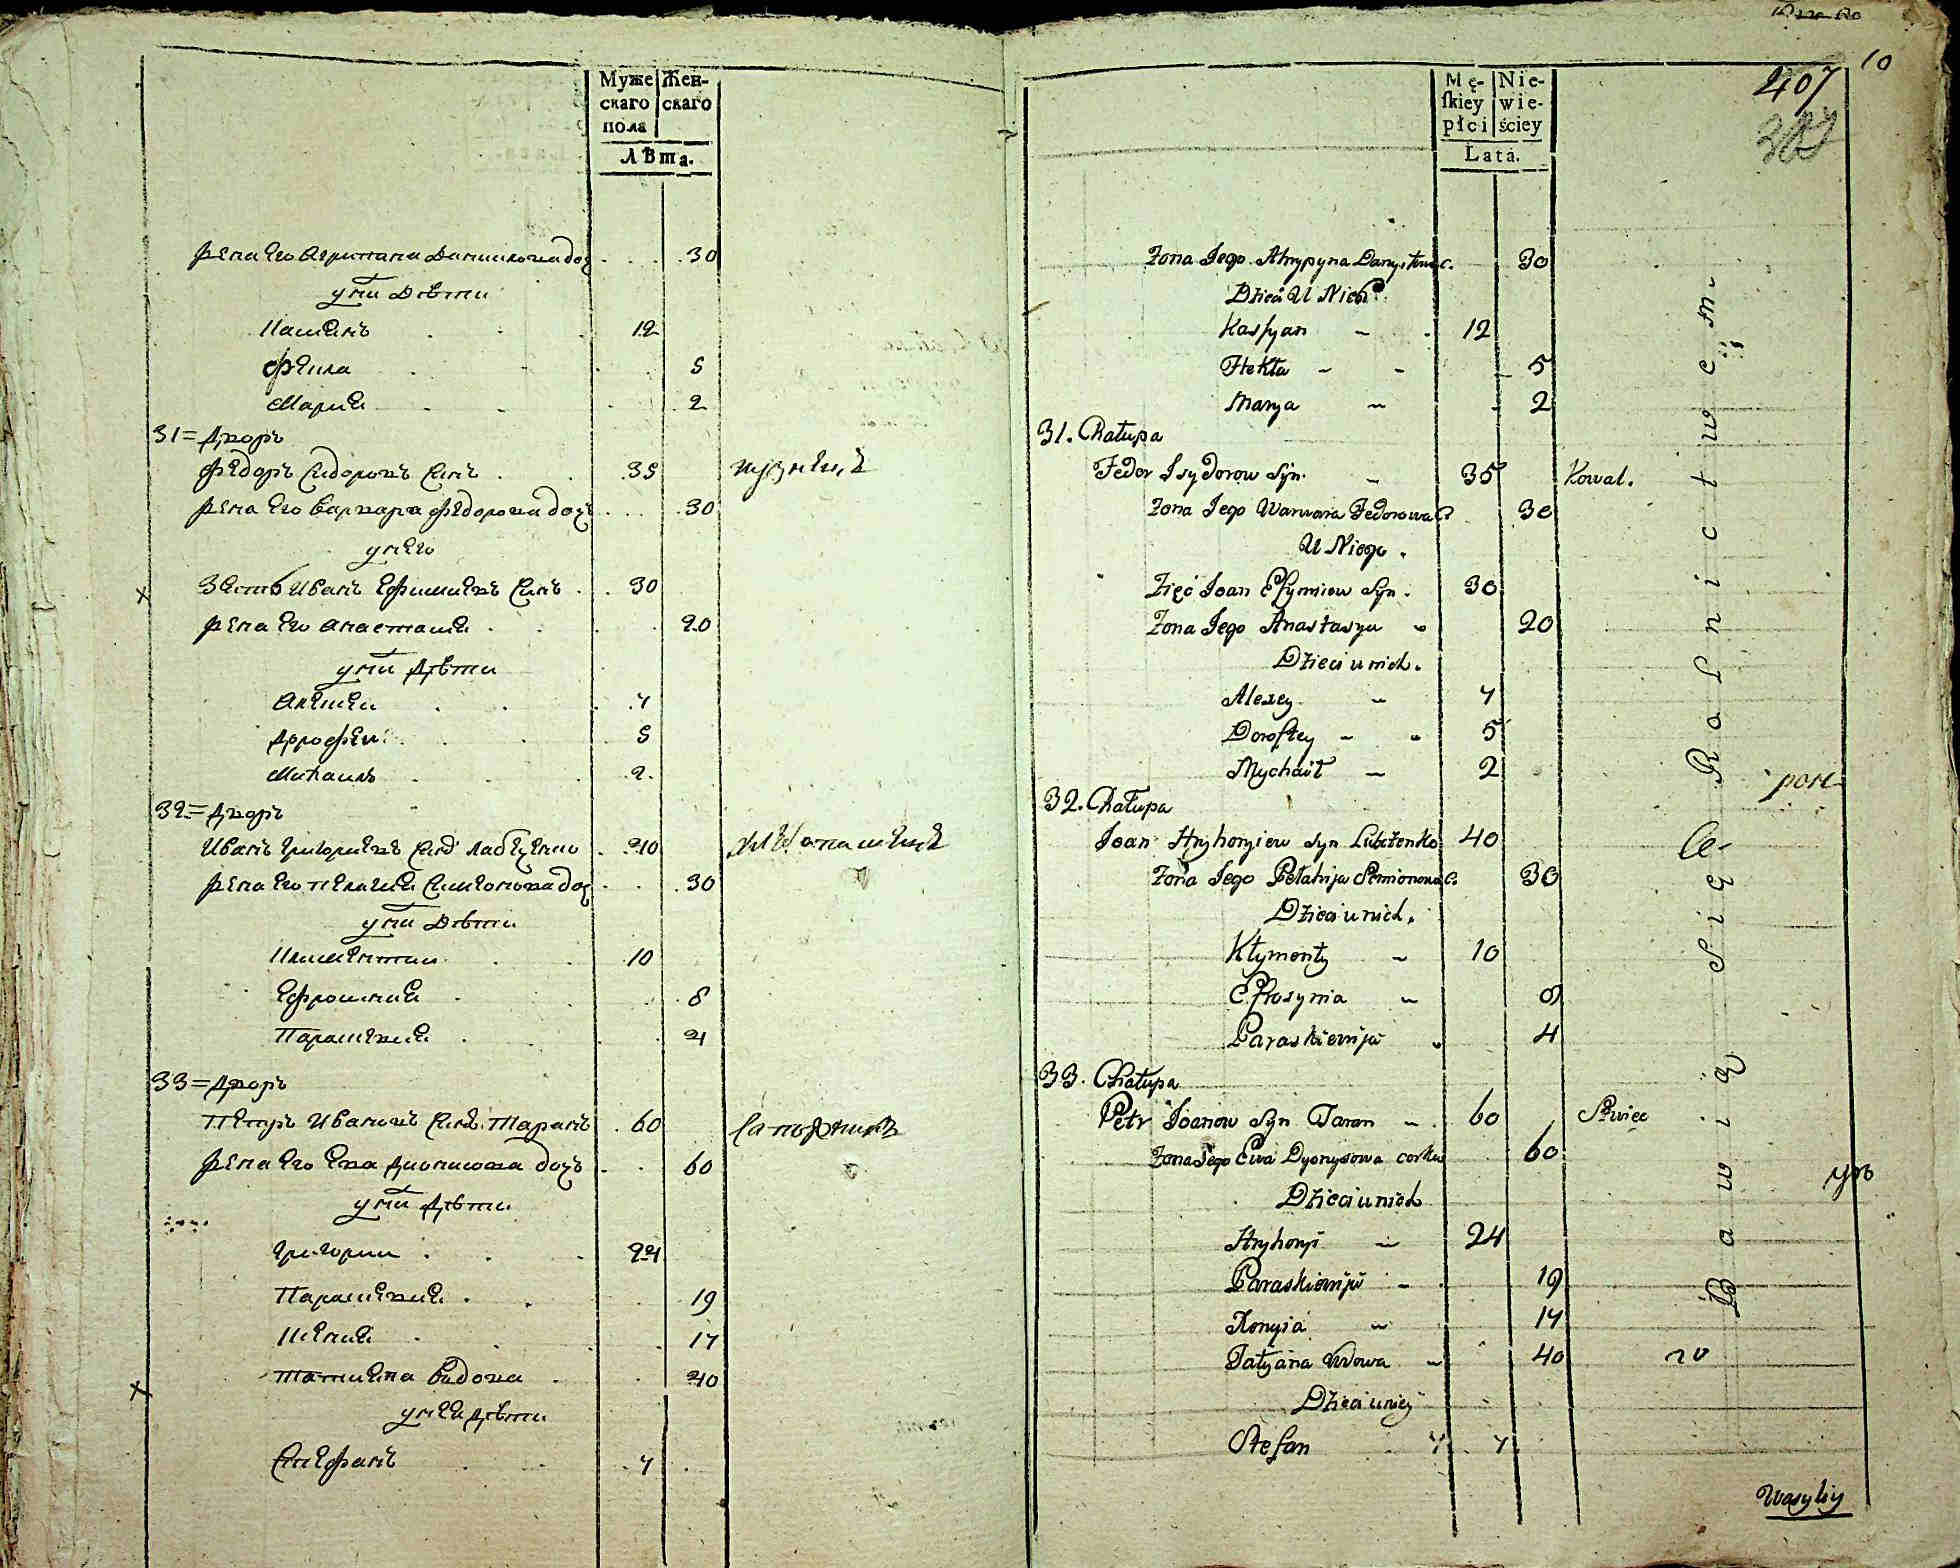 Муже
скаго
пола
Жен-
скаго
Лѣта.
жена его Агрипина Данилова доч. 30
у ни Дѣти
Касиянъ 12
Фекла 5
Мария 2
31 = Дворъ
Федоръ Сидоровъ Синъ 35 кузнецъ
жена его Варвара Федорова доч. 30
у него
Зять Иванъ Ефимиевъ Синъ 30
жена его Анастасия 20
у ни Дѣти
Алексей 7
Дорофей 5
Михаилъ 2
32 = Дворъ
Иванъ Григориевъ Синъ 40
жена его Пелагия Симеонова доч. 30
у ни Дѣти
Климентии 10
Ефросиния 8
Параскевия 4
33 = Дворъ
Петръ Ивановъ Синъ Таранъ 60 Сапожникъ
жена его Ева Дионисова дочъ 60
у ни Дѣти
Григории 24
Параскевия 19
Ксения 17
Татияна вдова 40
у ней дѣти
Стефанъ 7
10
407
Mę-
ſkiey
płci
Nie-
wie-
ściey
Lata.
Zona Jego Ahrypyna Danyłowa c. 30
Dzieci U Nich
Kasyan 12
Tekła 5
Marya 2
31. Chałupa
Fedor Isydorow Syn 35 Kowal.
Zona Jego Warwara Fedorowa C. 30
U Niego.
Zięć Joan Efymiow Syn. 30
Zona Jego Anastasya 20
Dzieci u nich.
Alexey 7
Dorofiey 5
Mychaił 2
32. Chałupa
Joan Hryhoryiew Syn 40
Zona Jego Pełahija Semionowa C. 30
Dzieci u nich.
Kłymenty 10
Efrosynia 8
Paraskiewija 4
33. Chałupa
Petr Joanow Syn Taran 60 Szwiec
Zona Jego Ewa Dyonysowa corka 60
Dzieci u nich
Hryhoryi 24
Paraskiewija 19
Xenyia 17
Tatyana Wdowa 40
Dzieci u niey
Stefan 7
Bawią Się Rolnictwem
Wasyliy